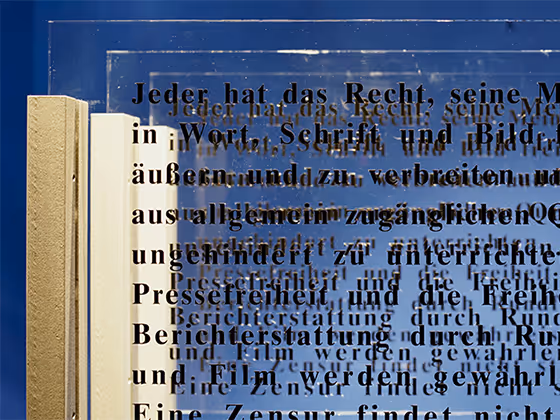 Jeder hat das Recht, seine M
in Wort, Schrift und Bild
äußern und zu verbreiten u
aus allgemein zugänglichen Q
ungehindert zu unterrichte
Pressefreiheit und die Freih
Berichterstattung durch Ru
und Film werden gewährl
Eine Zensur findet nicht